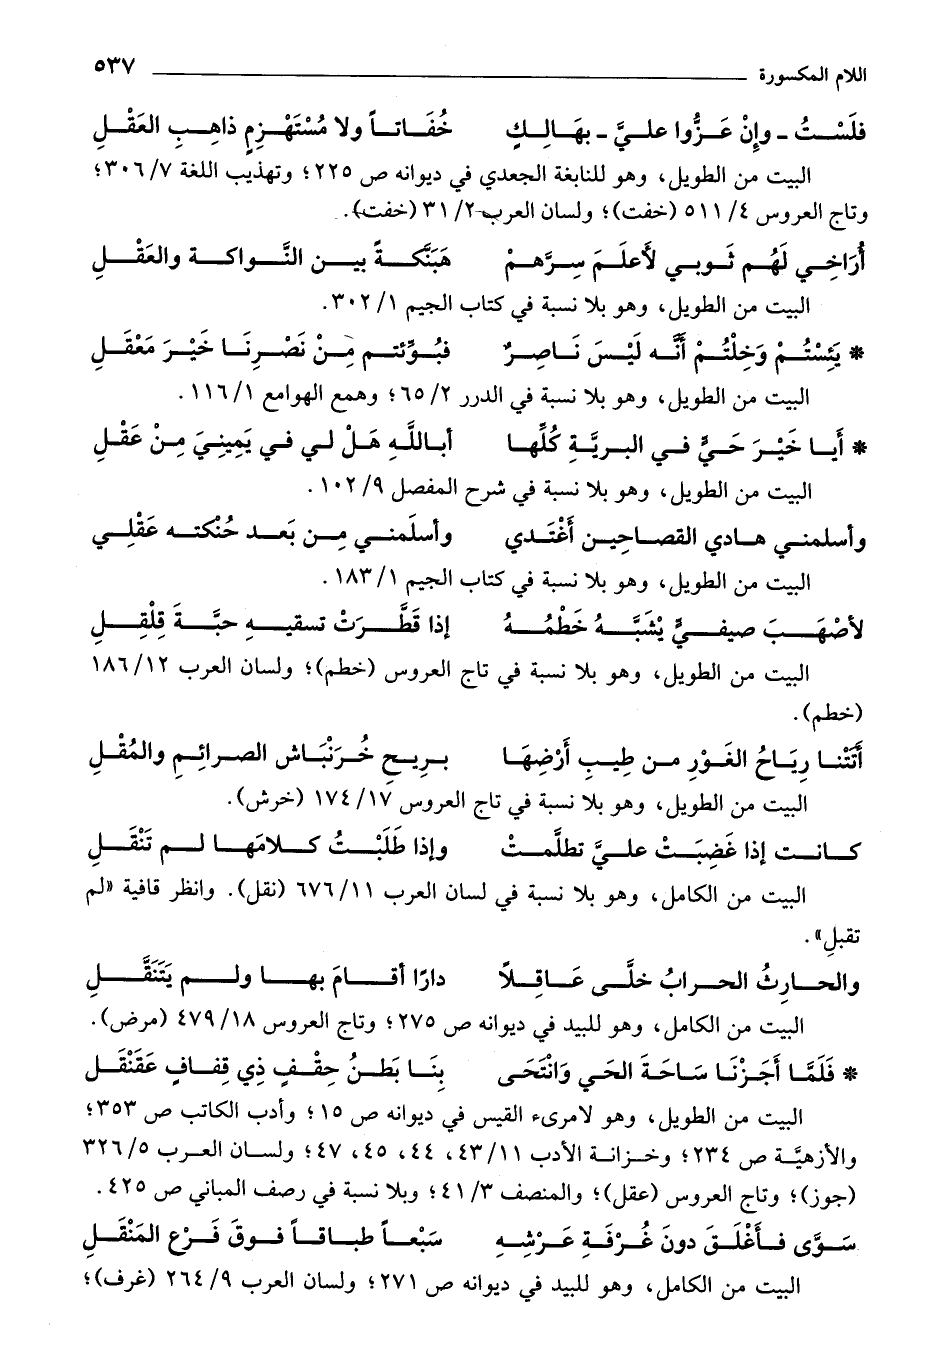 اللام المكسورة ٥٣٧
فلَسْتُ ـ وإنْ عَزُّوا عليَّ ـ بهَالِكٍ خُفَاتاً ولا مُسْتَهْزِمٍ ذاهِبِ العَقْلِ
البيت من الطويل، وهو للنابغة الجعدي في ديوانه ص ٢٢٥؛ وتهذيب اللغة ٣٠٦/٧؛
وتاج العروس ٥١١/٤ (خفت)؛ ولسان العرب ٣١/٢ (خفت).
أُرَاخِي لَهُم ثَوبي لأَعلَمَ سِرَّهمْ هَبَنَّكةً بين النَّواكة والعَقْلِ
البيت من الطويل، وهو بلا نسبة في كتاب الجيم ٣٠٢/١.
* يَئِسْتُمْ وَخِلْتُمْ أَنَّه لَيْسَ نَاصِرٌ فبُوِّئتم مِنْ نَصْرِنَا خَيْرَ مَعْقَلِ
البيت من الطويل، وهو بلا نسبة في الدرر ٦٥/٢؛ وهمع الهوامع ١١٦/١.
* أَيا خَيْرَ حَيٍّ في البريَّةِ كُلِّها أباللَّهِ هَلْ لي في يَمِينِيَ مِنْ عَقْلِ
البيت من الطويل، وهو بلا نسبة في شرح المفصل ١٠٢/٩.
وأسلمني هادي القصاحين أَغْتَدي وأسلَمني مِن بَعد حُنْكته عَقْلِي
البيت من الطويل، وهو بلا نسبة في كتاب الجيم ١٨٣/١.
لأصْهَبَ صيفيٍّ يُشَبَّهُ خَطْمُهُ إذا قَطَّرَتْ تسقيهِ حبَّةَ قِلْقِلِ
البيت من الطويل، وهو بلا نسبة في تاج العروس (خطم)؛ ولسان العرب ١٨٦/١٢
(خطم).
أَتَتْنا رِيَاحُ الغَوْرِ من طِيبِ أَرْضِهَا بريحِ خُرَنْبَاش الصرائِمِ والمُقْلِ
البيت من الطويل، وهو بلا نسبة في تاج العروس ١٧٤/١٧ (خرش).
كانت إذا غَضِبَتْ عليَّ تظلَّمتْ وإذا طَلَبْتُ كلامَها لم تَنْقَلِ
البيت من الكامل، وهو بلا نسبة في لسان العرب ٦٧٦/١١ (نقل). وانظر قافية «لم
تقبلِ».
والحارِثُ الحرابُ خلَّى عَاقِلاً دارًا أقامَ بها ولم يَتَنَقَّلِ
البيت من الكامل، وهو للبيد في ديوانه ص ٢٧٥؛ وتاج العروس ٤٧٩/١٨ (مرض).
* فَلَمَّا أَجَزْنَا سَاحَةَ الحَي وَانْتَحَى بِنَا بَطنُ حِقْفٍ ذِي قِفافٍ عَقَنْقَلِ
البيت من الطويل، وهو لامرىء القيس في ديوانه ص ١٥؛ وأدب الكاتب ص ٣٥٣؛
والأزهيَّة ص ٢٣٤؛ وخزانة الأدب ٤٣/١١، ٤٤، ٤٥، ٤٧؛ ولسان العرب ٣٢٦/٥
(جوز)؛ وتاج العروس (عقل)؛ والمنصف ٤١/٣؛ وبلا نسبة في رصف المباني ص ٤٢٥.
سَوَّى فأَغْلَقَ دونَ غُرْفَةِ عَرْشِهِ سَبْعاً طباقاً فوقَ فَرْعِ المَنْقَلِ
البيت من الكامل، وهو للبيد في ديوانه ص ٢٧١؛ ولسان العرب ٢٦٤/٩ (غرف)؛